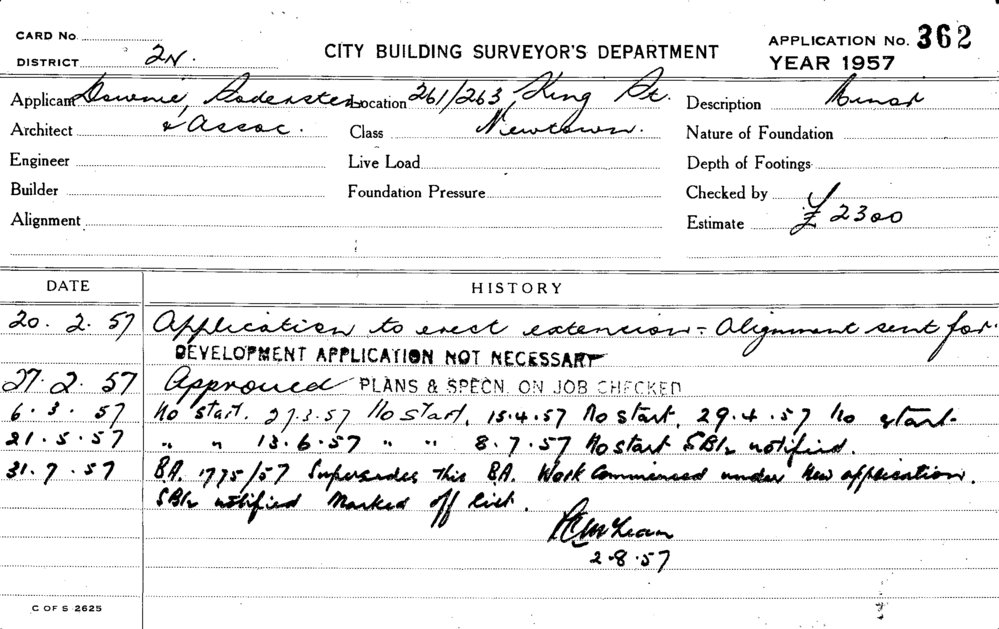 CARD No.
DISTRICT 2N.
CITY BUILDING SURVEYOR'S DEPARTMENT
APPLICATION No. 362
YEAR 1957
Applicant Downie, Location 261/263 King St. Description Minor
Architect & Assoc. Class Newtown. Nature of Foundation
Engineer Live Load Depth of Footings
Builder Foundation Pressure Checked by
Alignment Estimate £ 2300
DATE HISTORY
20. 2. 57 Application to erect extension - Alignment sent for.
DEVELOPMENT APPLICATION NOT NECESSARY
27. 2. 57 Approved PLANS & SPECN. ON JOB CHECKED
6. 3. 57 No start. 27.3.57 No start. 15.4.57 No start. 29.4.57 No start.
21. 5. 57 " " 13.6.57 " " 8.7.57 No start notified.
31. 7. 57 B.A. 1775/57 Supersedes This B.A. Work Commenced under New application.
notified Marked off list.
2.8.57
C OF S 2625